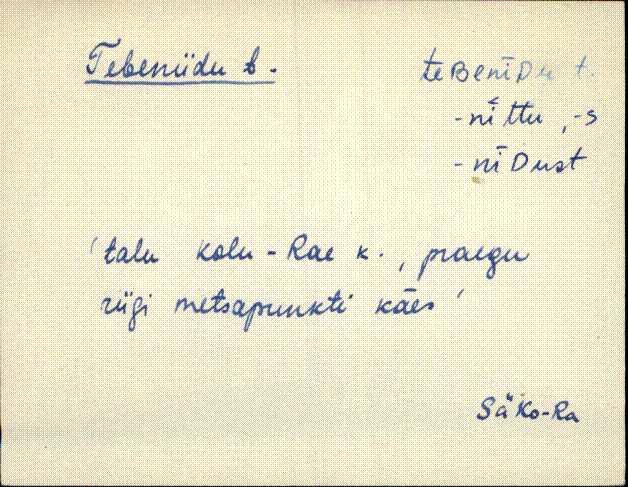 Tebeniidu t.
teBenīDu t.
-nīttu, -s
-nīDust
'talu Kolu-Rae k., praegu
riigi metsapunkti käes'
SäKo-Ra